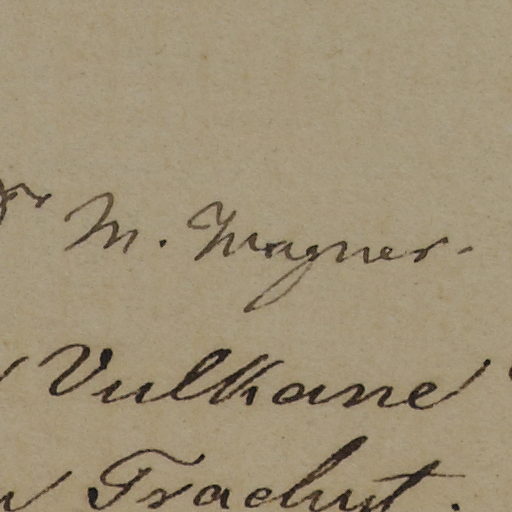 Dr M. Wagner.
Vulkane
Trachyt.